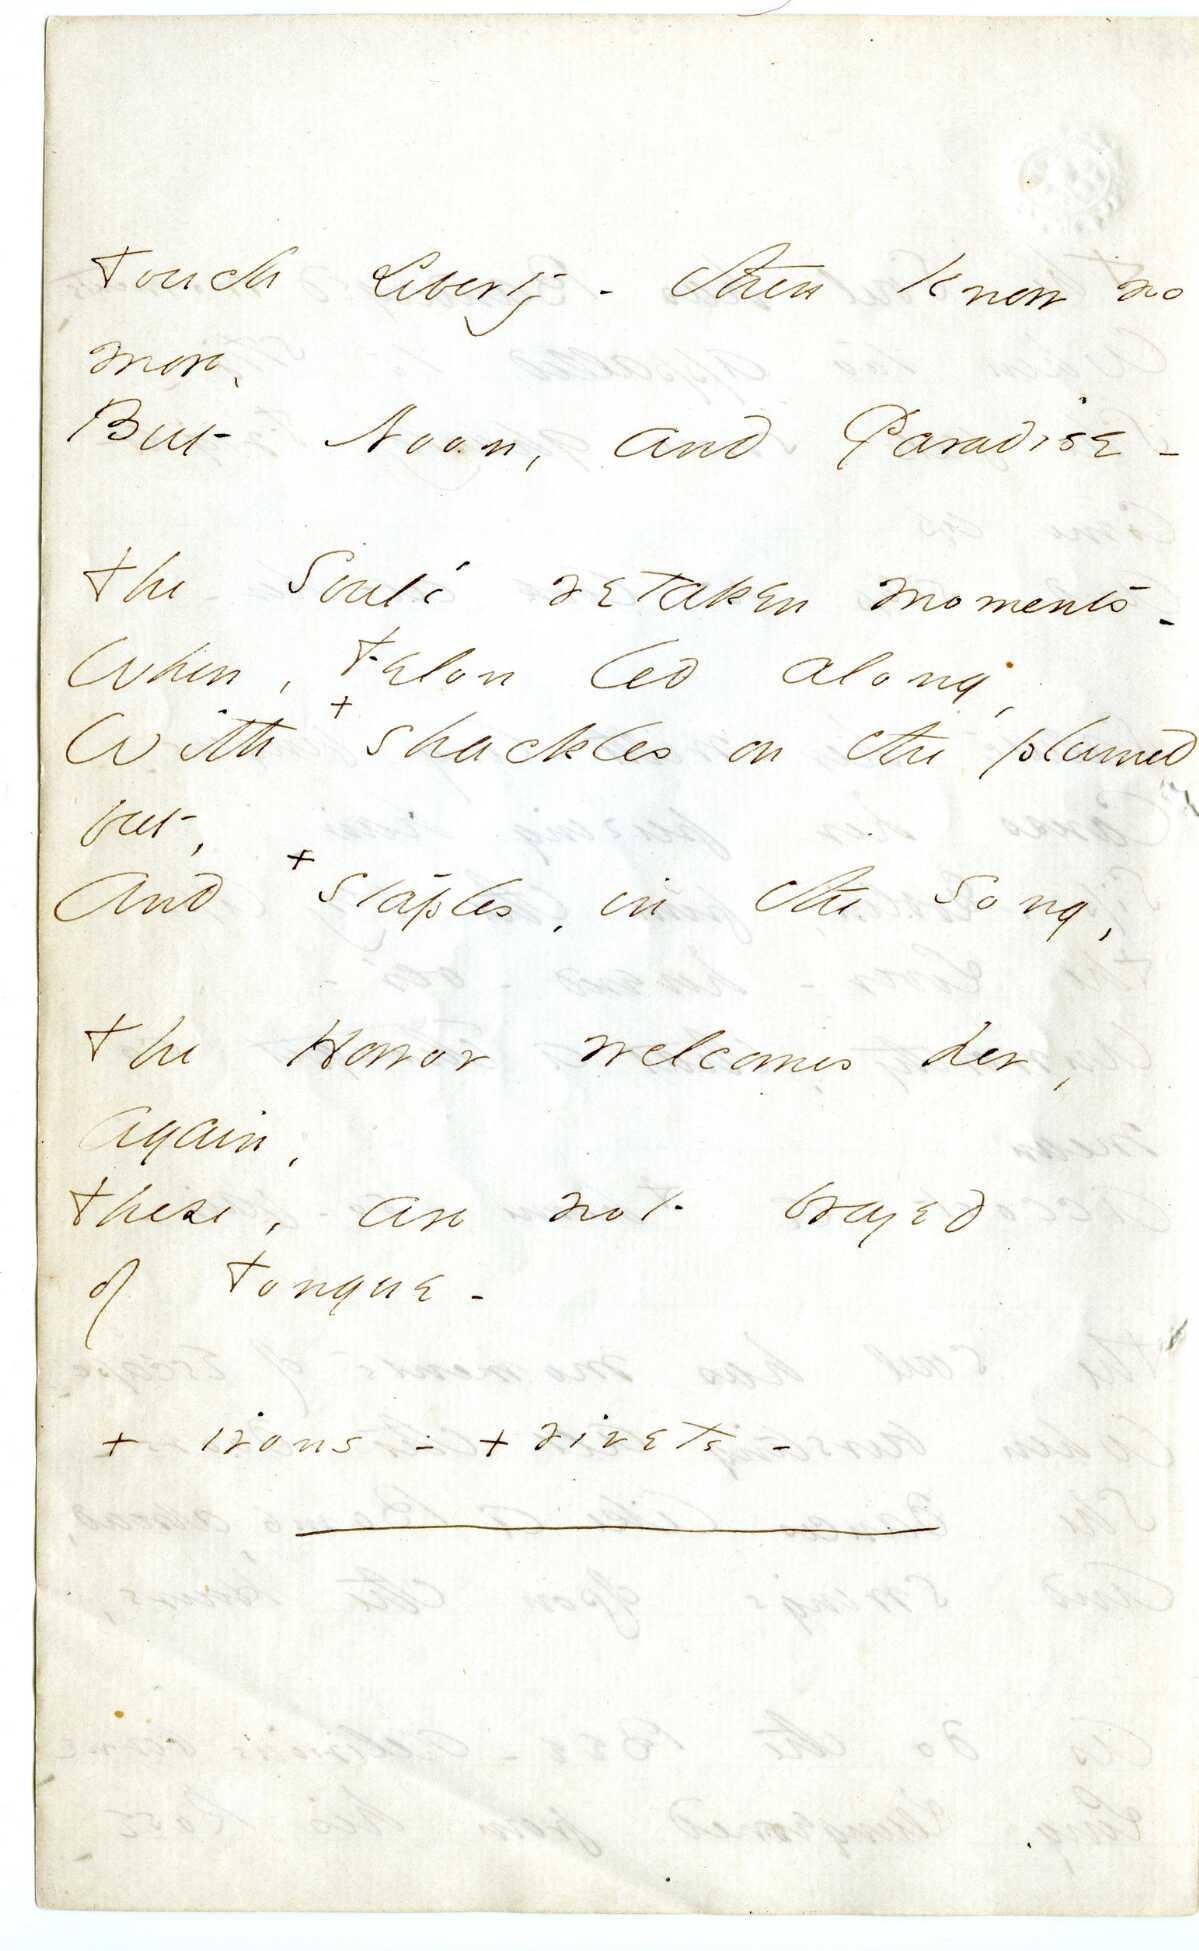 Touch Liberty - then know no
more,
But Noon, and Paradise -

The Soul's retaken moments -
When, Felon led along,
With + shackles on the plumed
feet,
And + staples, in the Song,

The Horror welcomes her,
again,
These, are not brayed
of Tongue -

+ irons - + rivets -